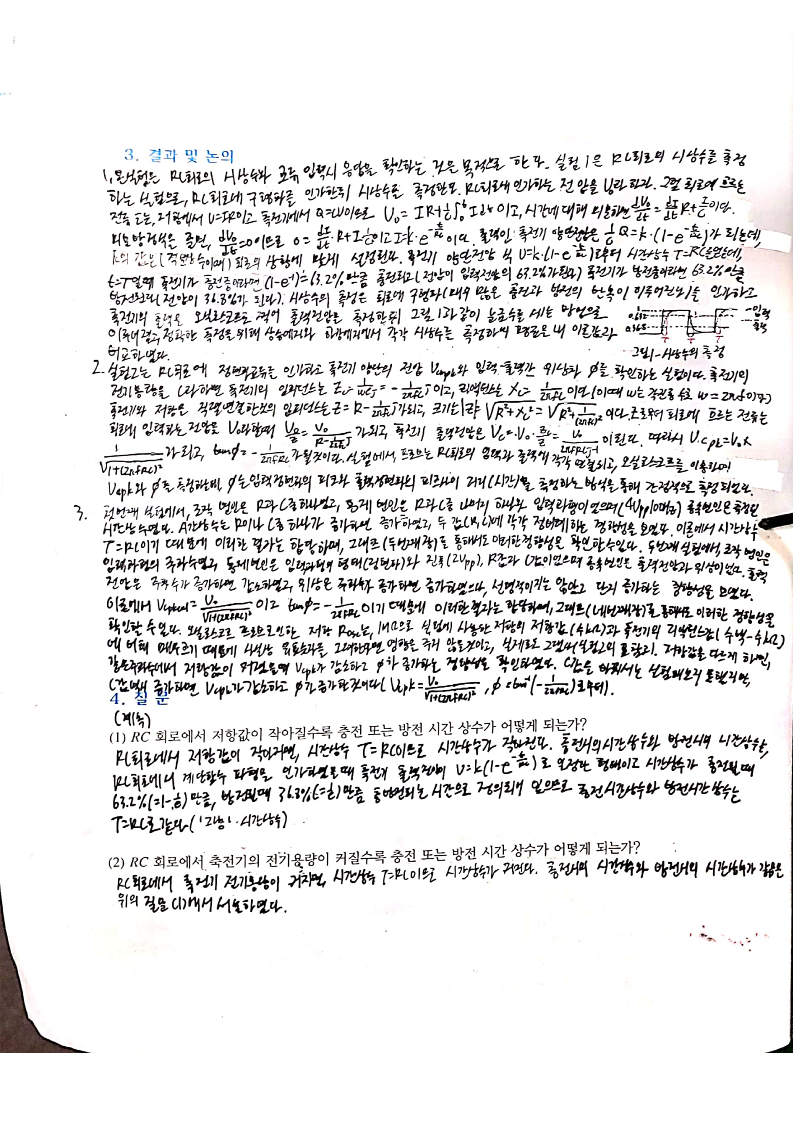 3. 결과 및 논의
1. 본 실험은 RC회로의 시상수와 교류 입력시 응답을 확인하는 것을 목적으로 한다. 실험 1은 RC회로의 시상수를 측정
하는 실험으로, RC회로에 구형파를 인가한뒤 시상수를 측정한다. RC회로에 인가하는 전압을 V₀라 하자. 그럼 회로에 흐르는
전류 I는, 저항에서 V=IR이고 축전기에서 Q=CV이므로 V₀ = IR+1/C∫₀ᵗ I dt 이고, 시간에 대해 미분하면 dV₀/dt = dI/dt R + I/C 이다.
미분방정식을 풀면, dV₀/dt=0이므로 0 = dI/dt R+I 1/C 이고 I=k·e^(-t/RC) 이다. 축전기 양단전압은 1/C Q=k·(1-e^(-t/RC))가 되는데,
k의 값은 (적분상수이며) 회로의 상황에 맞게 설정된다. 축전기 양단전압 식 V=k·(1-e^(-t/RC))로부터 시간상수 T=RC를 얻는데,
t=T일때 축전기가 충전중이라면 (1-e⁻¹)=63.2%만큼 충전되고 (전압이 입력전압의 63.2%가 된다) 축전기가 방전중이라면 63.2%만큼
방전된다(전압이 36.8%가 된다). 시상수의 측정은 회로에 구형파(매우 많은 충전과 방전의 반복이 이루어진다)를 인가하고
축전기의 출력을 오실로스코프로 찍어 출력전압을 측정한 뒤 그림 1과 같이 눈금수를 세는 방법으로
이루어졌고, 정확한 측정을 위해 상승에지와 하강에지에서 각각 시상수를 측정하여 평균을 내 이론값과
비교하였다.
0.632
0.368
입력
출력
T T
그림1-시상수의 측정
2. 실험2는 RC회로에 정현파교류를 인가하고 축전기 양단의 전압 Vcpk와 입력-출력간 위상차 ø를 확인하는 실험이다. 축전기의
전기용량을 C라하면 축전기의 임피던스는 Zc = 1/ωCj = - 1/2πfC j이고, 리액턴스는 Xc = 1/2πfC 이다(이때 ω는 각진동수로 ω=2πf이다)
축전기와 저항은 직렬연결하므로 임피던스는 Z=R-1/2πfC j가 되고, 크기는 |Z| √(R²+Xc²) = √(R²+1/(2πfC)²) 이다. 그러므로 회로에 흐르는 전류는
회로에 입력하는 전압을 V₀라 할때 V₀/Z = V₀/(R-1/2πfC j) 가 되고, 축전기 출력전압은 Vc=V₀·Zc/Z = V₀/(2πfRCj+1) 이 된다. 따라서 Vcpk=V₀×
1/√(1+(2πfRC)²) 가 되고, tanø=-1/2πfRC 가 될것이다. 실험에서, 프로브는 RC회로의 입력과 출력에 각각 연결되고, 오실로스코프를 이용하여
Vcpk와 ø를 측정하는데, ø는 입력정현파의 피크와 출력정현파의 피크사이 거리(시간)를 측정하는 방식을 통해 간접적으로 측정되었다.
3. 첫번째 실험에서, 조작 변인은 R과 C중 하나였고, 통제 변인은 R과 C중 나머지 하나와 입력파형이었으며(4Vpp) 종속변인은 측정된
시간상수였다. 시간상수는 R이나 C중 하나가 증가하면 증가하였고, 두 값(R, C)에 각각 정비례하는 경향성을 보였다. 이론에서 시간상수
T=RC이기 때문에 이러한 결과는 합당하며, 그래프(두번째장)를 통해서도 이러한 경향성을 확인할 수 있다. 두번째 실험에서, 조작 변인은
입력파형의 주파수였고 통제변인은 입력파형의 형태(정현파)와 진폭(2Vpp), R값과 C값이었으며 종속변인은 출력전압과 위상이었다. 출력
전압은 주파수가 증가하면 감소하였고, 위상은 주파수가 증가하면 증가하였으나, 선형적이지는 않았고 단지 증가하는 경향성을 보였다.
이론에서 Vcpk = V₀/√(1+(2πfRC)²) 이고 tanø=-1/2πfRC 이기 때문에 이러한 결과는 합당하며, 그래프(네번째장)를 통해서도 이러한 경향성을
확인할 수 있다. 오실로스코프 프로브로인한 저항 Rosc는, 1MΩ으로 실험에 사용한 저항의 저항값(수kΩ)과 축전기의 리액턴스값(수백~수kΩ)
에 비해 매우 크기 때문에 사실상
같은 주파수에서 저항값이 커졌을때 Vcpk가 감소하고 ø가 증가하는 경향성을 확인하였다.
C값 또한 증가하면 Vcpk가 감소하고 ø가 증가할것이다(Vcpk=V₀/√(1+(2πfRC)²), ø=tan⁻¹(-1/2πfRC)로부터).
4. 질문
(계속)
(1) RC 회로에서 저항값이 작아질수록 충전 또는 방전 시간 상수가 어떻게 되는가?
RC회로에서 저항값이 작아지면, 시간상수 T=RC이므로 시간상수가 작아진다. 충전시의 시간상수와 방전시의 시간상수는,
RC회로에서 계단함수 파형을 인가하였을때 축전기 출력전압이 V=k(1-e^(-t/RC))로 일정한 형태이고 시간상수가 충전될때
63.2%(=1-1/e)만큼, 방전될때 36.8%(=1/e)만큼 되는 시간으로 정의되어 있으므로 충전시간상수와 방전시간상수는
T=RC로 같다.
(2) RC 회로에서 축전기의 전기용량이 커질수록 충전 또는 방전 시간 상수가 어떻게 되는가?
RC회로에서 축전기 전기용량이 커지면, 시간상수 T=RC이므로 시간상수가 커진다. 충전시의 시간상수와 방전시의 시간상수가 같음은
위의 질문 (1)에서 서술하였다.